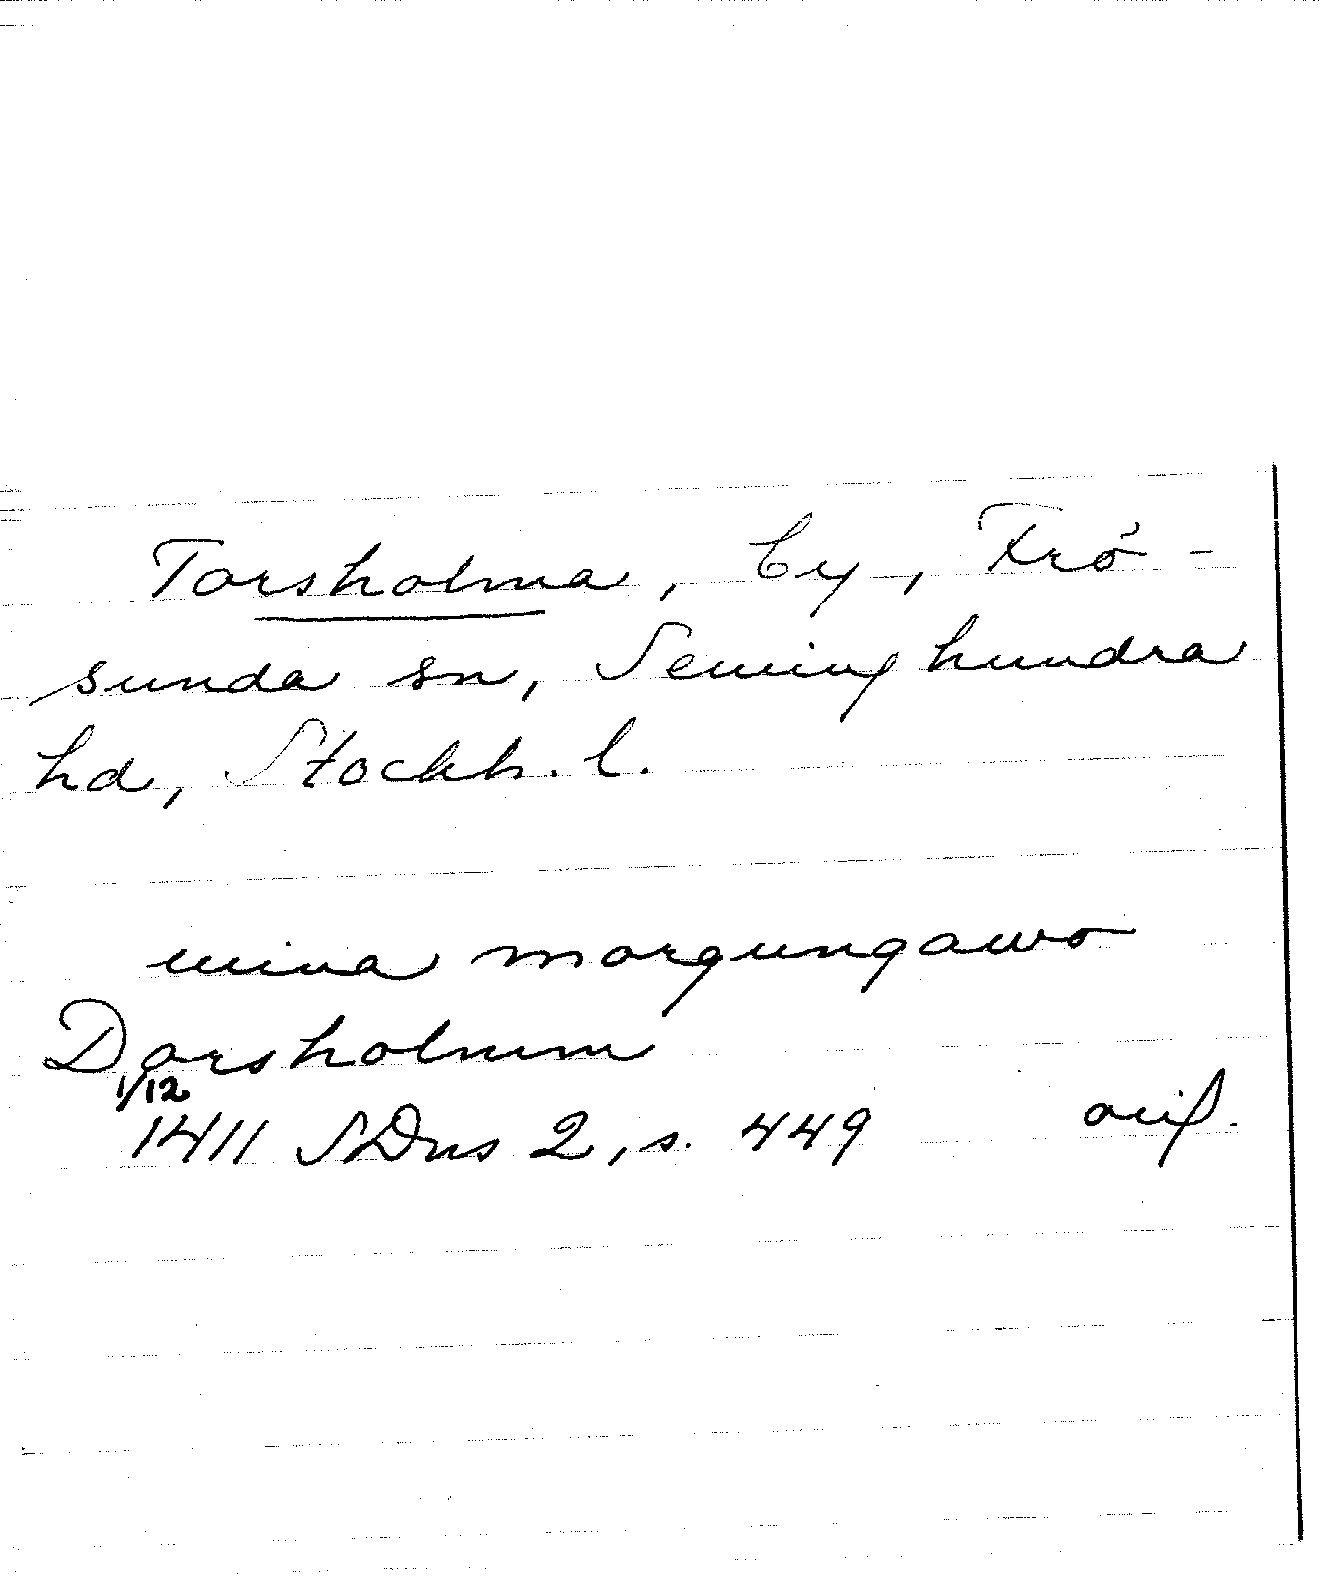 Torsholma, by, Frö-
sunda sn, Seminghundra
hd, Stockh. l.
mina morgungawo
Dorsholmm
1/12
1411 SDns 2, s. 449 orig.